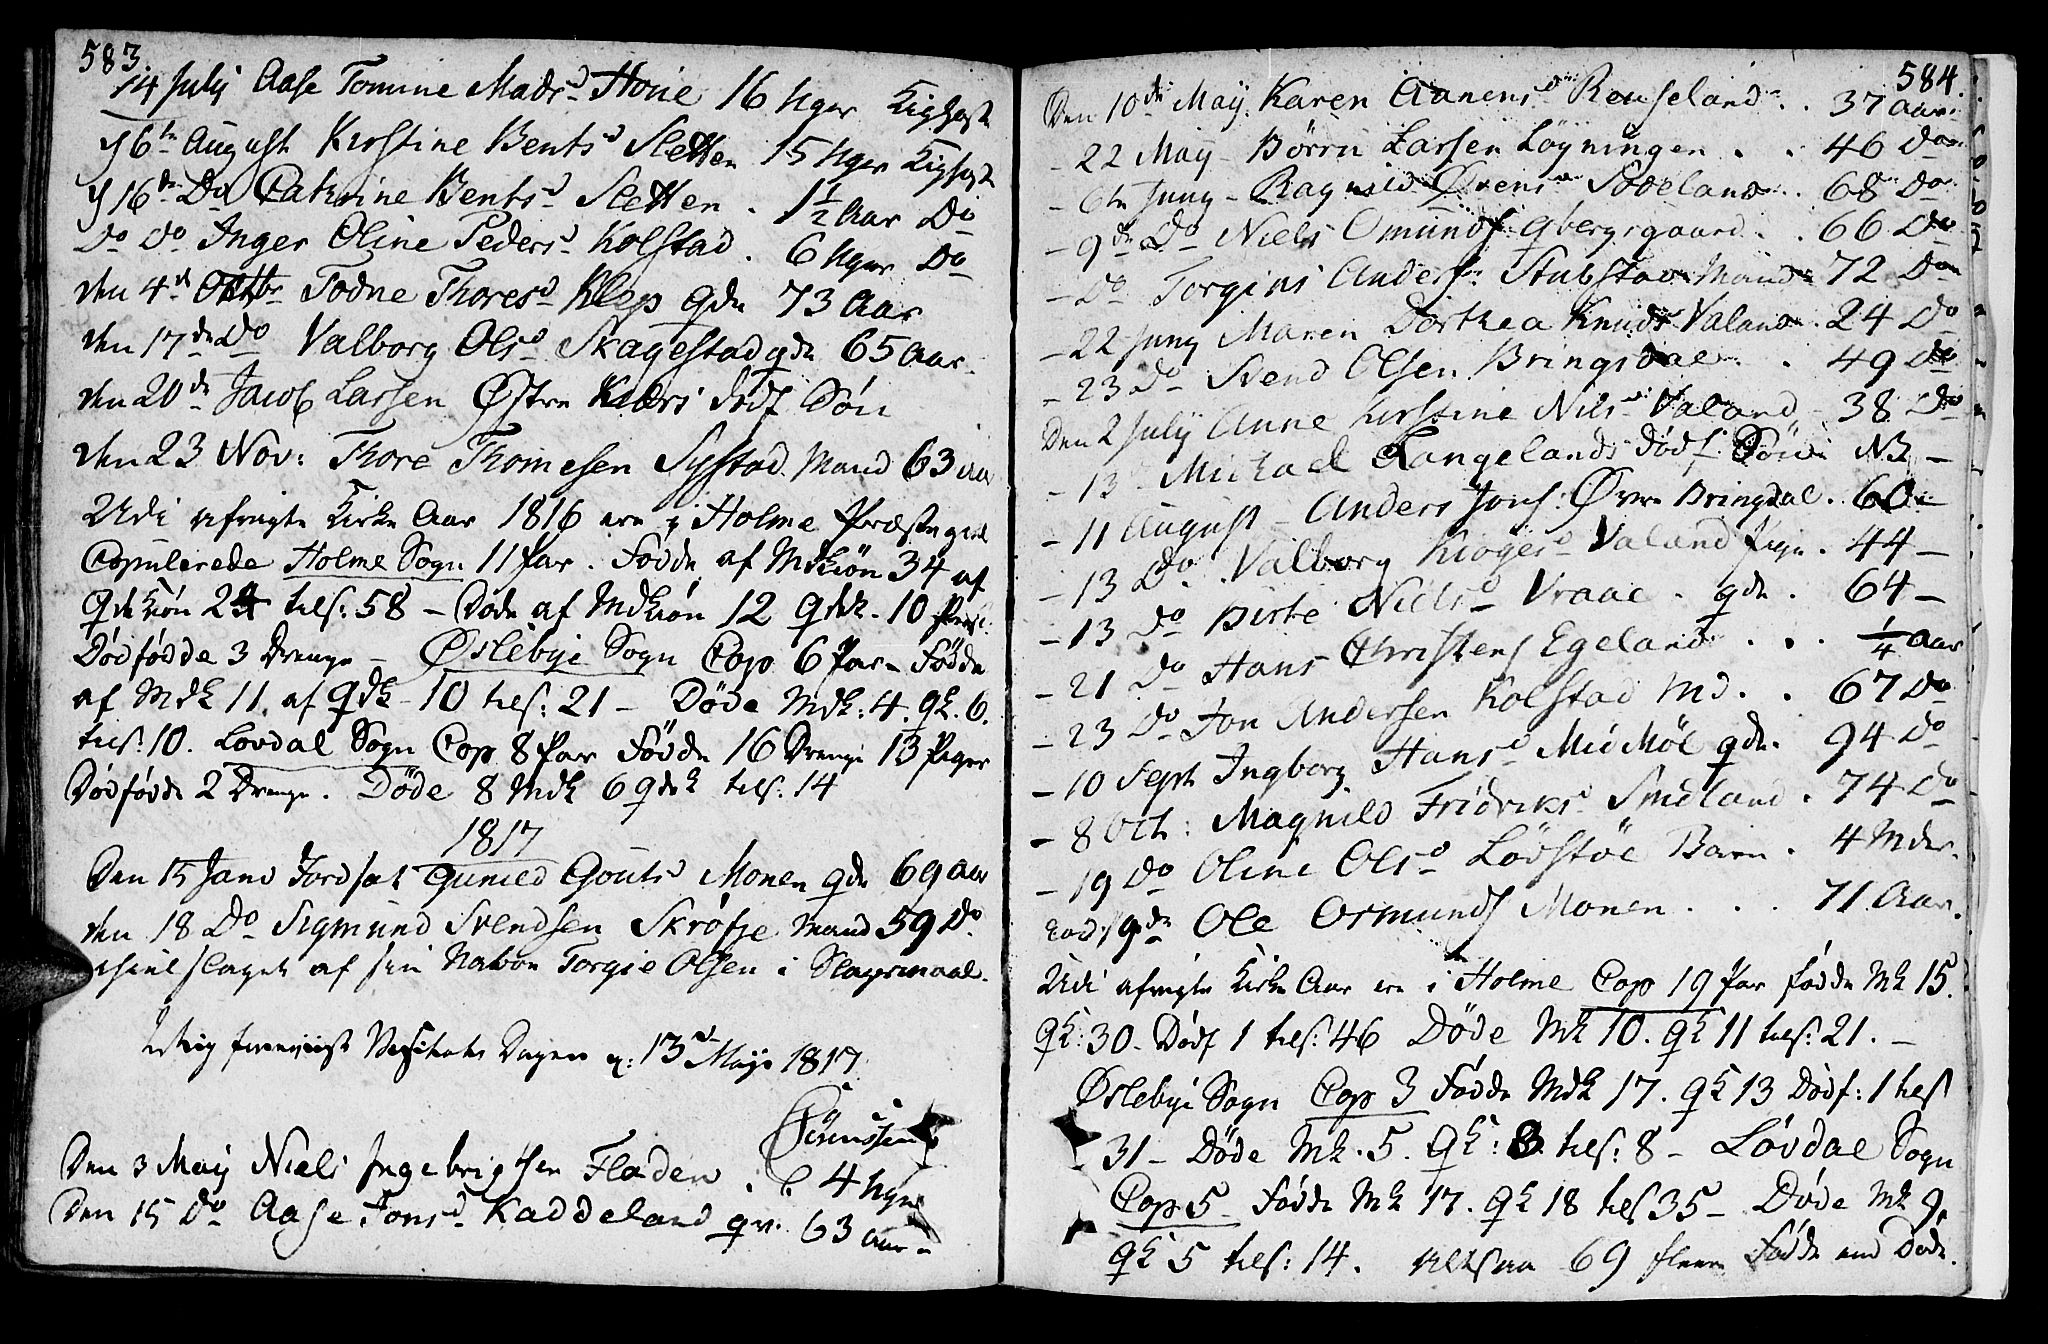 583.
14 July Aase Tomine Madsd Hoüe 16 Uger
d 6te August Kirstine Bentsd Sletten 15 Uger
d 16de Do Cathrine Bentsd Sletten . 1 1/2 Aar Do
Do Do Inger Oline Pedersd Kolstad . 6 Uger Do
den 4de Octbr Todne Thoresd Klep qde 73 Aar
den 17de Do Valborg Olsd Skagestad qde 65 Aar
den 20de Jacob Larsen Østre Kiærs dødf Søn
den 23 Nov: Thore Thomesen Systad Mand 63 aar
Udi afvigte Kirke Aar 1816 ere i Holme Præstegield
Copulerede Holme Sogn 11 Par . Fødde af Mdkiøn 34 af
Qdekiøn 24 tils: 58 – Døde af Mdkiøn 12 Qdk. 10
Dødfødde 3 Drenge – Øslebye Sogn Cop 6 Par – Fødde
af Mdk 11. af Qdk – 10 tils: 21 – Døde Mdk: 4. Qk. 6.
tils: 10. Løvdal Sogn Cop 8 Par Fødde 16 Drenge 13 Piger
Dødfødde 2 Drenge . Døde 8 Mdk 6 Qdk tils: 14
1817
Den 15 Janv Jordsat Guniled Goutsd Monen qde 69 Aar
den 18 Do Sigmund Svendsen Skrøfje Mand 59 Do
ihielslaget af sin Naboe Torgie Olsen i Slagsmaal.
Visitats Dagen d: 13de Maji 1817
Sørenssen
Den 3 May Niels Ingebrigtsen Fladen . . 4 Uger
Den 15 Do Aase Jonsd Kaddeland qv. 63 Aar
584.
Den 10de May. Karen Aanensd Reuseland . . 37 Aar
– 22 May – Børru Larsen Løyningen . . 46 Do
– 6te Juny – Ragnild Øvensd Sødeland . 68 Do
– 9de Do Niels Omunds Øbergsgaard . . 66 Do
– Do Torgius Anders: Stubstad Mand 72 Do
– 22 Juny Maren Dorthea Knudsd Valand . 24 Do
– 23 Do Svend Olsen Bringsdal . . 49 Do
Den 2 July Anne Kirstine Nilsd Valand – 38 Do
– 13 Michael Langelands Dødf: Søn NB –
– 11 August – Anders Jons: Øvre Bringdal . 60 –
– 13 Do Valborg Kiøgesd Valand Pige . 44 –
– 13 do Birte Nielsd Vraae . qde . 64 –
– 21 Do Hans Christens Egeland . . . 1/4 Aar
– 23 Do Jon Andersen Kolstad Md . . 67 Do
– 10 Sept Ingborg Hansd Mid Møl qde. 94 Do
– 8 Oct: Magnild Fridriksd Smeland . 74 Do
– 19 Do Oline Olsd Løvstøl Barn . 4 Mdr.
Ole Osmunds Monen . . . 71 Aar.
Udi afvigte Kirke Aar ere i Holme Cop 19 Par fødde Mk 15.
Qk: 30 – Dødf 1 tils: 46 Døde Mk 10. Qk 11 tils: 21. –
Øslebye Sogn Cop 3 Fødde Mdk 17. Qk 13 Dødf: 1 tils
31 – Døde Mk . 5 . Qk: 3. tils: 8 – Løvdal Sogn
Cop 5 – Fødde Mk 17. Qk 18 tils 35 – Døde Mk 9.
Qk 5 tils: 14 . altsaa 69 fleere Fødde end Døde.